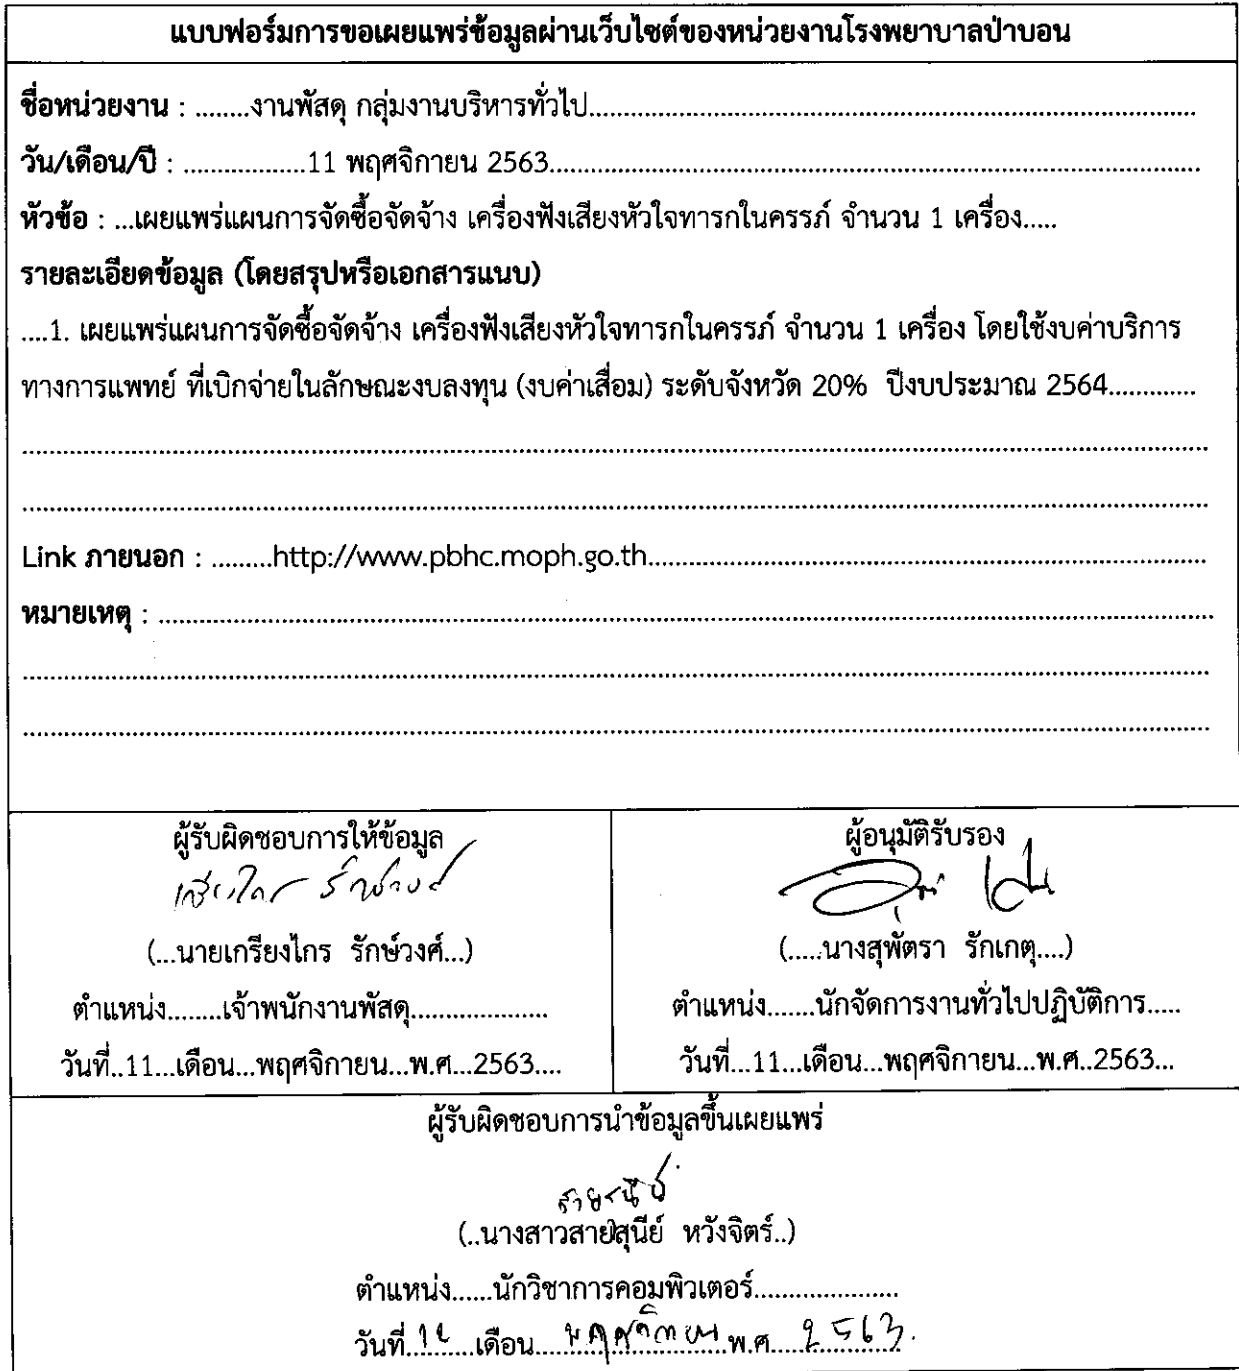 แบบฟอร์มการขอเผยแพร่ข้อมูลผ่านเว็บไซต์ของหน่วยงานโรงพยาบาลป่าบอน
ชื่อหน่วยงาน : ........งานพัสดุ กลุ่มงานบริหารทั่วไป........
วัน/เดือน/ปี : .................11 พฤศจิกายน 2563........
หัวข้อ : ...เผยแพร่แผนการจัดซื้อจัดจ้าง เครื่องฟังเสียงหัวใจทารกในครรภ์ จำนวน 1 เครื่อง.....
รายละเอียดข้อมูล (โดยสรุปหรือเอกสารแนบ)
....1. เผยแพร่แผนการจัดซื้อจัดจ้าง เครื่องฟังเสียงหัวใจทารกในครรภ์ จำนวน 1 เครื่อง โดยใช้งบค่าบริการ
ทางการแพทย์ ที่เบิกจ่ายในลักษณะงบลงทุน (งบค่าเสื่อม) ระดับจังหวัด 20% ปีงบประมาณ 2564.............
Link ภายนอก : .........http://www.pbhc.moph.go.th.........
หมายเหตุ : ........
ผู้รับผิดชอบการให้ข้อมูล
เกรียงไกร รักษ์วงศ์
(...นายเกรียงไกร รักษ์วงศ์...)
ตำแหน่ง........เจ้าพนักงานพัสดุ....................
วันที่..11...เดือน...พฤศจิกายน...พ.ศ...2563....
ผู้อนุมัติรับรอง
(.....นางสุพัตรา รักเกตุ....)
ตำแหน่ง.......นักจัดการงานทั่วไปปฏิบัติการ.....
วันที่...11...เดือน...พฤศจิกายน...พ.ศ..2563...
ผู้รับผิดชอบการนำข้อมูลขึ้นเผยแพร่
(..นางสาวสายสุนีย์ หวังจิตร์..)
ตำแหน่ง......นักวิชาการคอมพิวเตอร์....................
วันที่..........เดือน...พฤศจิกายน...พ.ศ....2563.